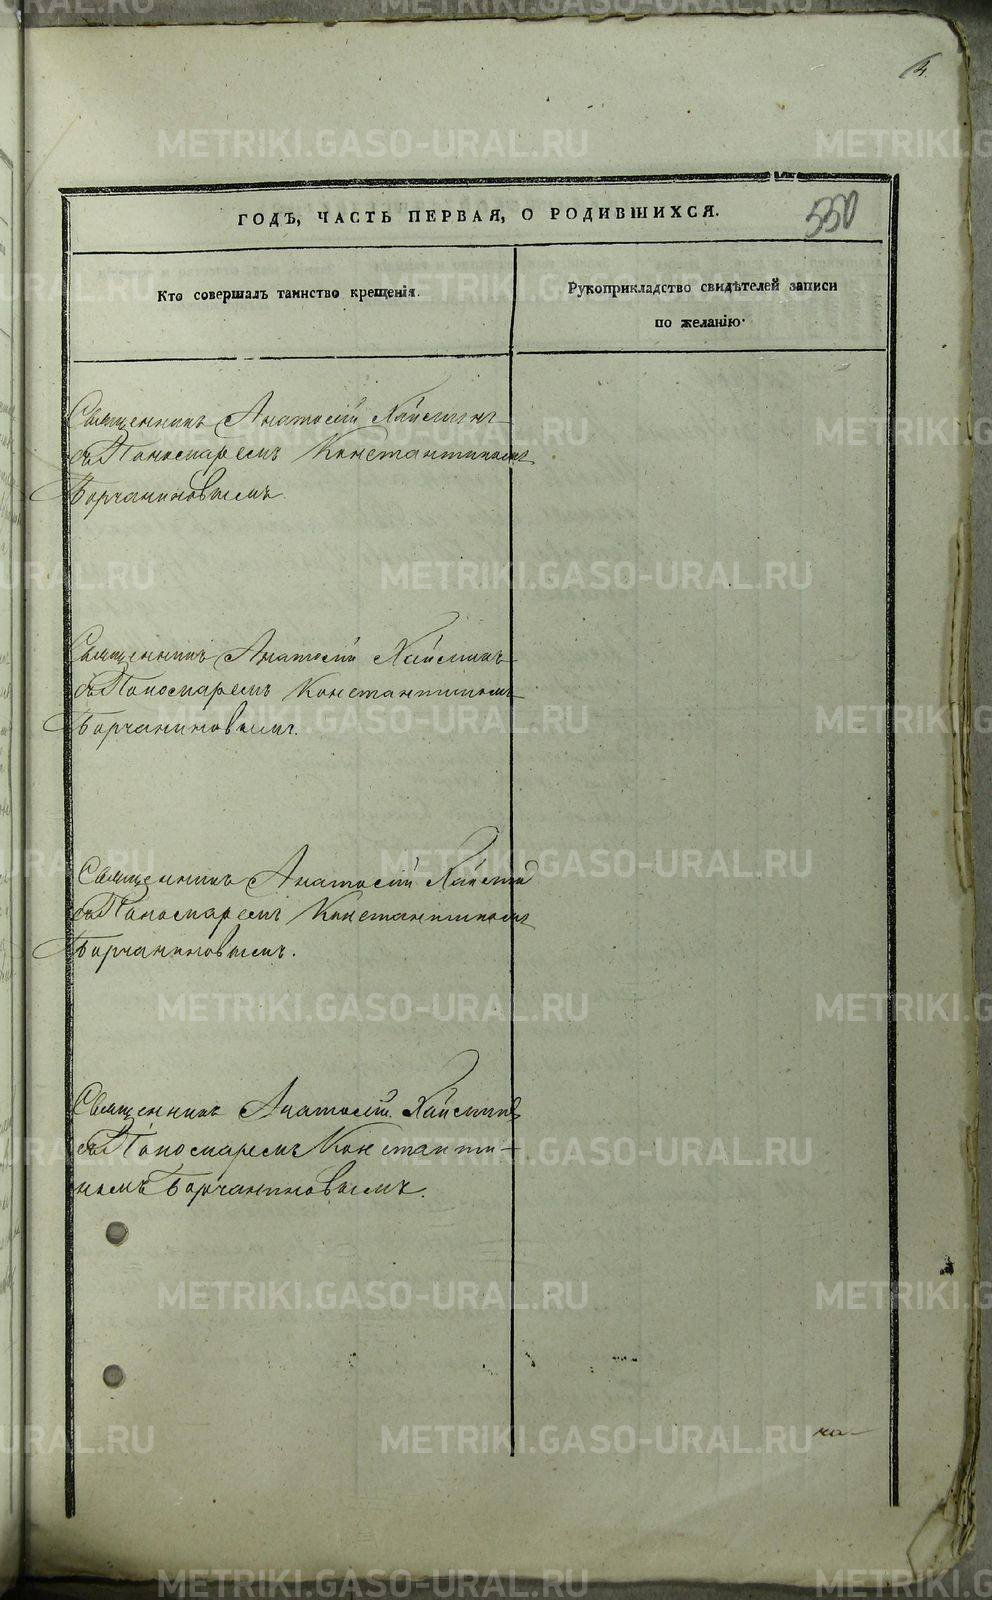 4.
ГОДЪ, ЧАСТЬ ПЕРВАЯ, О РОДИВШИХСЯ.
550
Кто совершалъ таинство крещенія.
Рукоприкладство свидѣтелей записи
по желанію.
Священникъ Анатолій Хайминъ
съ Пономаремъ Константиномъ
Борчаниновымъ.
Священникъ Анатолій Хайминъ
съ Пономаремъ Константиномъ
Борчаниновымъ.
Священникъ Анатолій Хайминъ
съ Пономаремъ Константиномъ
Борчаниновымъ.
Священникъ Анатолій Хайминъ
съ Пономаремъ Константи-
номъ Борчаниновымъ.
METRIKI.GASO-URAL.RU